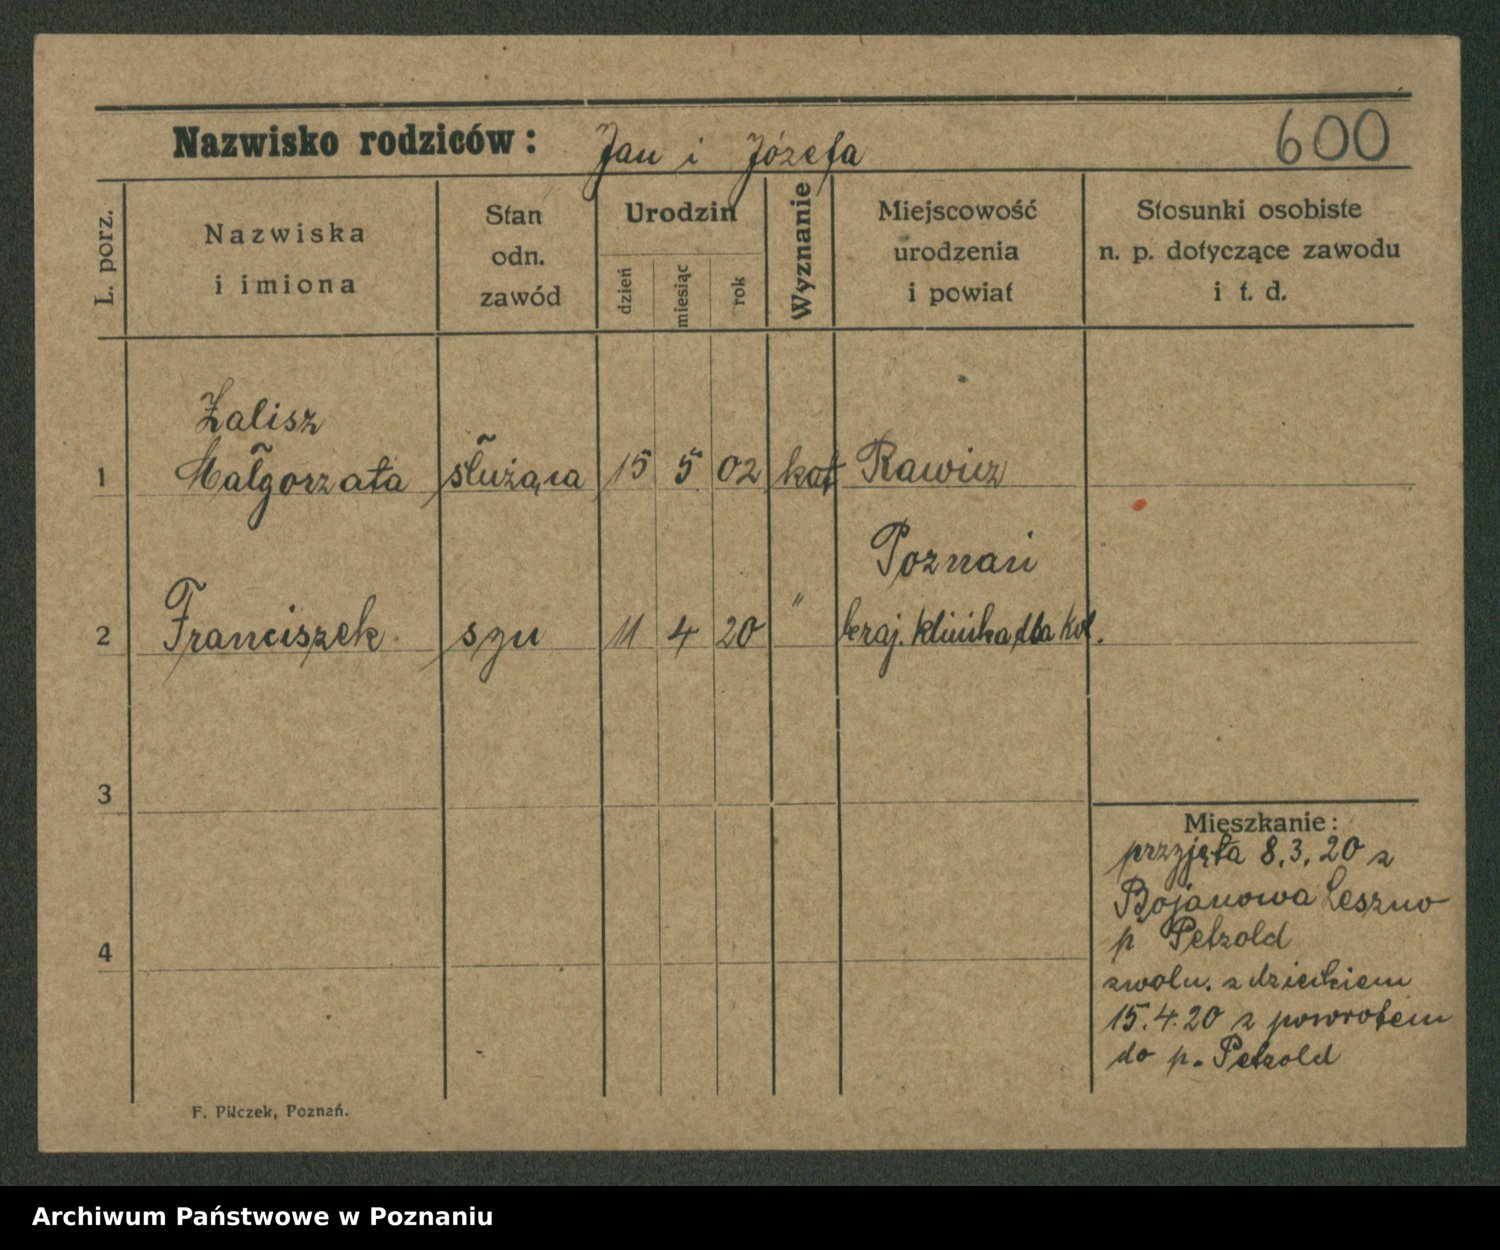 Nazwisko rodziców: Jan i Józefa 600
L. porz.
Nazwiska
i imiona
Stan
odn.
zawód
Urodzin
dzień
miesiąc
rok
Wyznanie
Miejscowość
urodzenia
i powiat
Stosunki osobiste
n. p. dotyczące zawodu
i t. d.
Zalisz
1 Małgorzata służąca 15 5 02 kat Rawicz
Poznań
2 Franciszek syn 11 4 20 " kraj. klinika dla kob.
3
4
Mieszkanie:
przyjęta 8.3.20 z
Bojanowa Leszno
p Petzold
zwoln. z dzieckiem
15.4.20 z powrotem
do p. Petzold
F. Pilczek, Poznań.
Archiwum Państwowe w Poznaniu